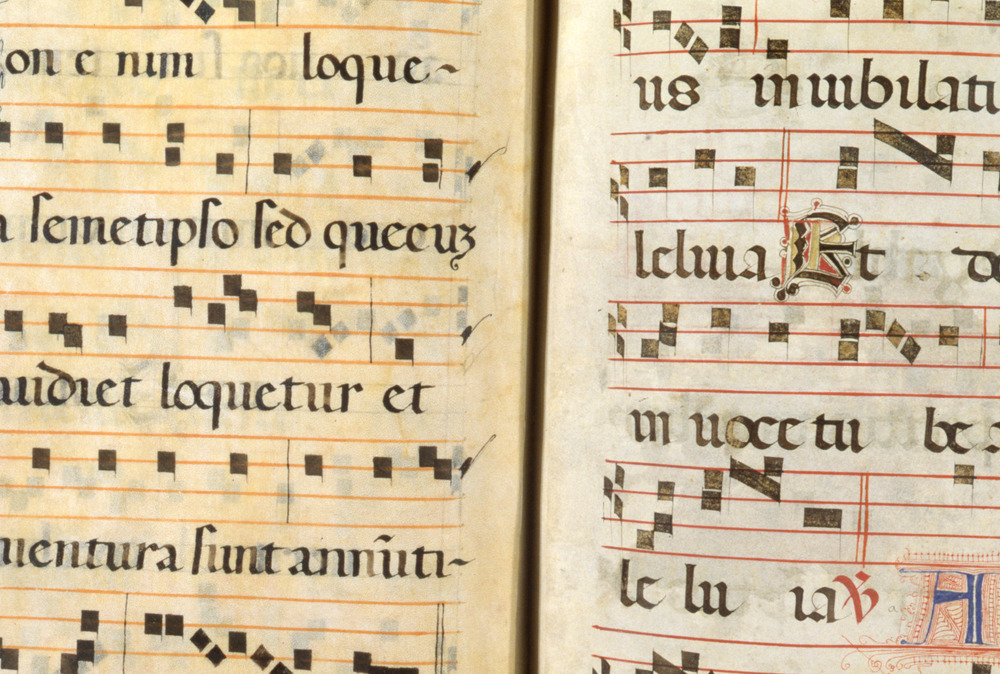 on e nim loque~
semetipso sed quecuz
audiet loquetur et
uentura sunt annūti~
us in iubilati
leluia Et de
in uoce tu be
le lu ia ℣ A